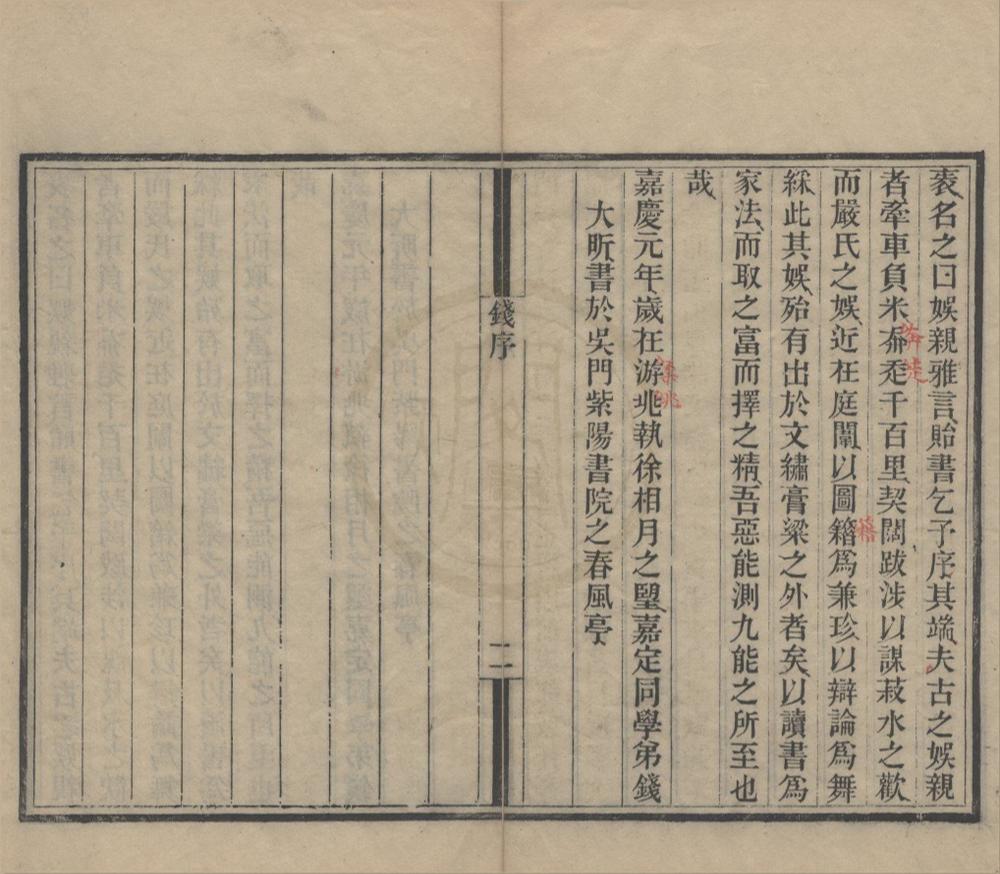 袠名之曰娛親雅言貽書乞予序其端夫古之娛親
者牽車負米奔走千百里契闊跋涉以謀菽水之歡
而嚴氏之娛近在庭闈以圖籍爲兼珍以辯論爲舞
綵此其娛殆有出於文繡膏粱之外者矣以讀書爲
家法而取之富而擇之精吾惡能測九能之所至也
哉
嘉慶元年歲在游兆執徐相月之朢嘉定同學弟錢
大昕書於吳門紫陽書院之春風亭
錢序
二
奔走
籍